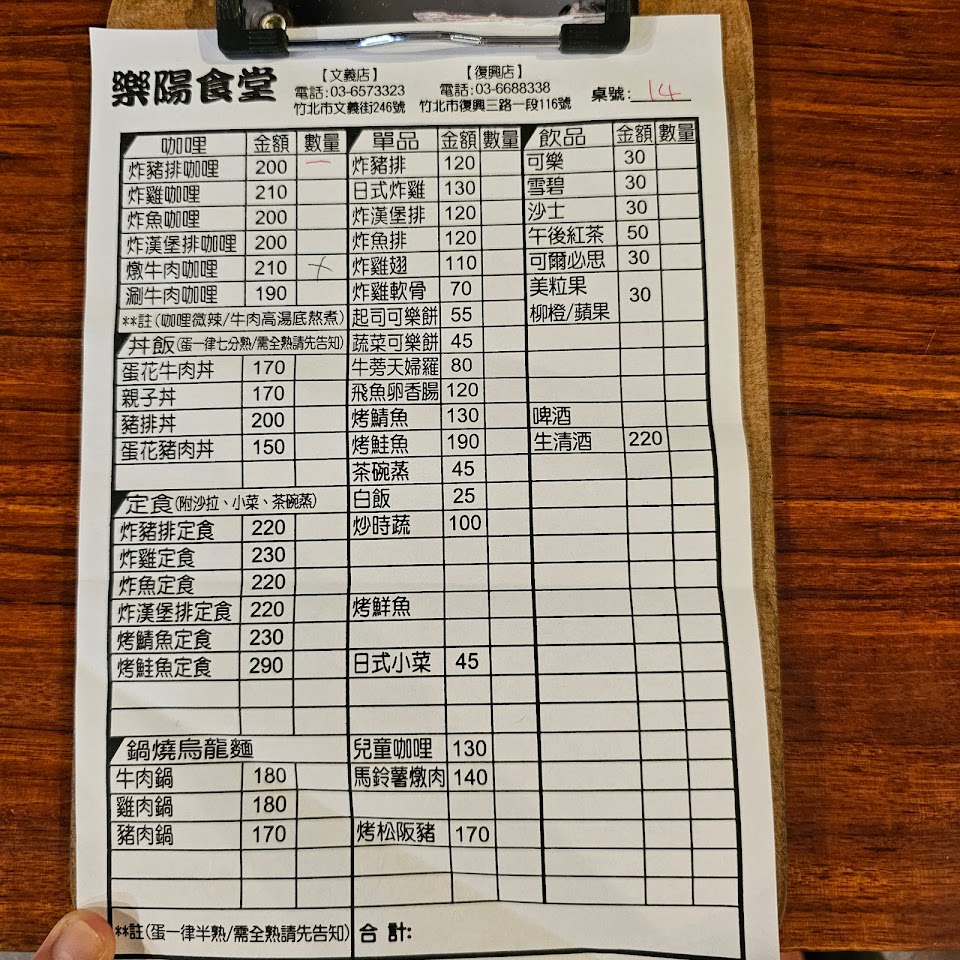 樂陽食堂
【文義店】 【復興店】
電話:03-6573323 電話:03-6688338
竹北市文義街246號 竹北市復興三路一段116號 桌號: 14
咖哩 金額 數量
炸豬排咖哩 200 一
炸雞咖哩 210
炸魚咖哩 200
炸漢堡排咖哩 200
燉牛肉咖哩 210
涮牛肉咖哩 190
**註(咖哩微辣/牛肉高湯底熬煮)
丼飯(蛋一律七分熟/需全熟請先告知)
蛋花牛肉丼 170
親子丼 170
豬排丼 200
蛋花豬肉丼 150
定食(附沙拉、小菜、茶碗蒸)
炸豬排定食 220
炸雞定食 230
炸魚定食 220
炸漢堡排定食 220
烤鯖魚定食 230
烤鮭魚定食 290
鍋燒烏龍麵
牛肉鍋 180
雞肉鍋 180
豬肉鍋 170
**註(蛋一律半熟/需全熟請先告知)
單品 金額 數量
炸豬排 120
日式炸雞 130
炸漢堡排 120
炸魚排 120
炸雞翅 110
炸雞軟骨 70
起司可樂餅 55
蔬菜可樂餅 45
牛蒡天婦羅 80
飛魚卵香腸 120
烤鯖魚 130
烤鮭魚 190
茶碗蒸 45
白飯 25
炒時蔬 100
烤鮮魚
日式小菜 45
兒童咖哩 130
馬鈴薯燉肉 140
烤松阪豬 170
合計:
飲品 金額 數量
可樂 30
雪碧 30
沙士 30
午後紅茶 50
可爾必思 30
美粒果
柳橙/蘋果 30
啤酒
生清酒 220